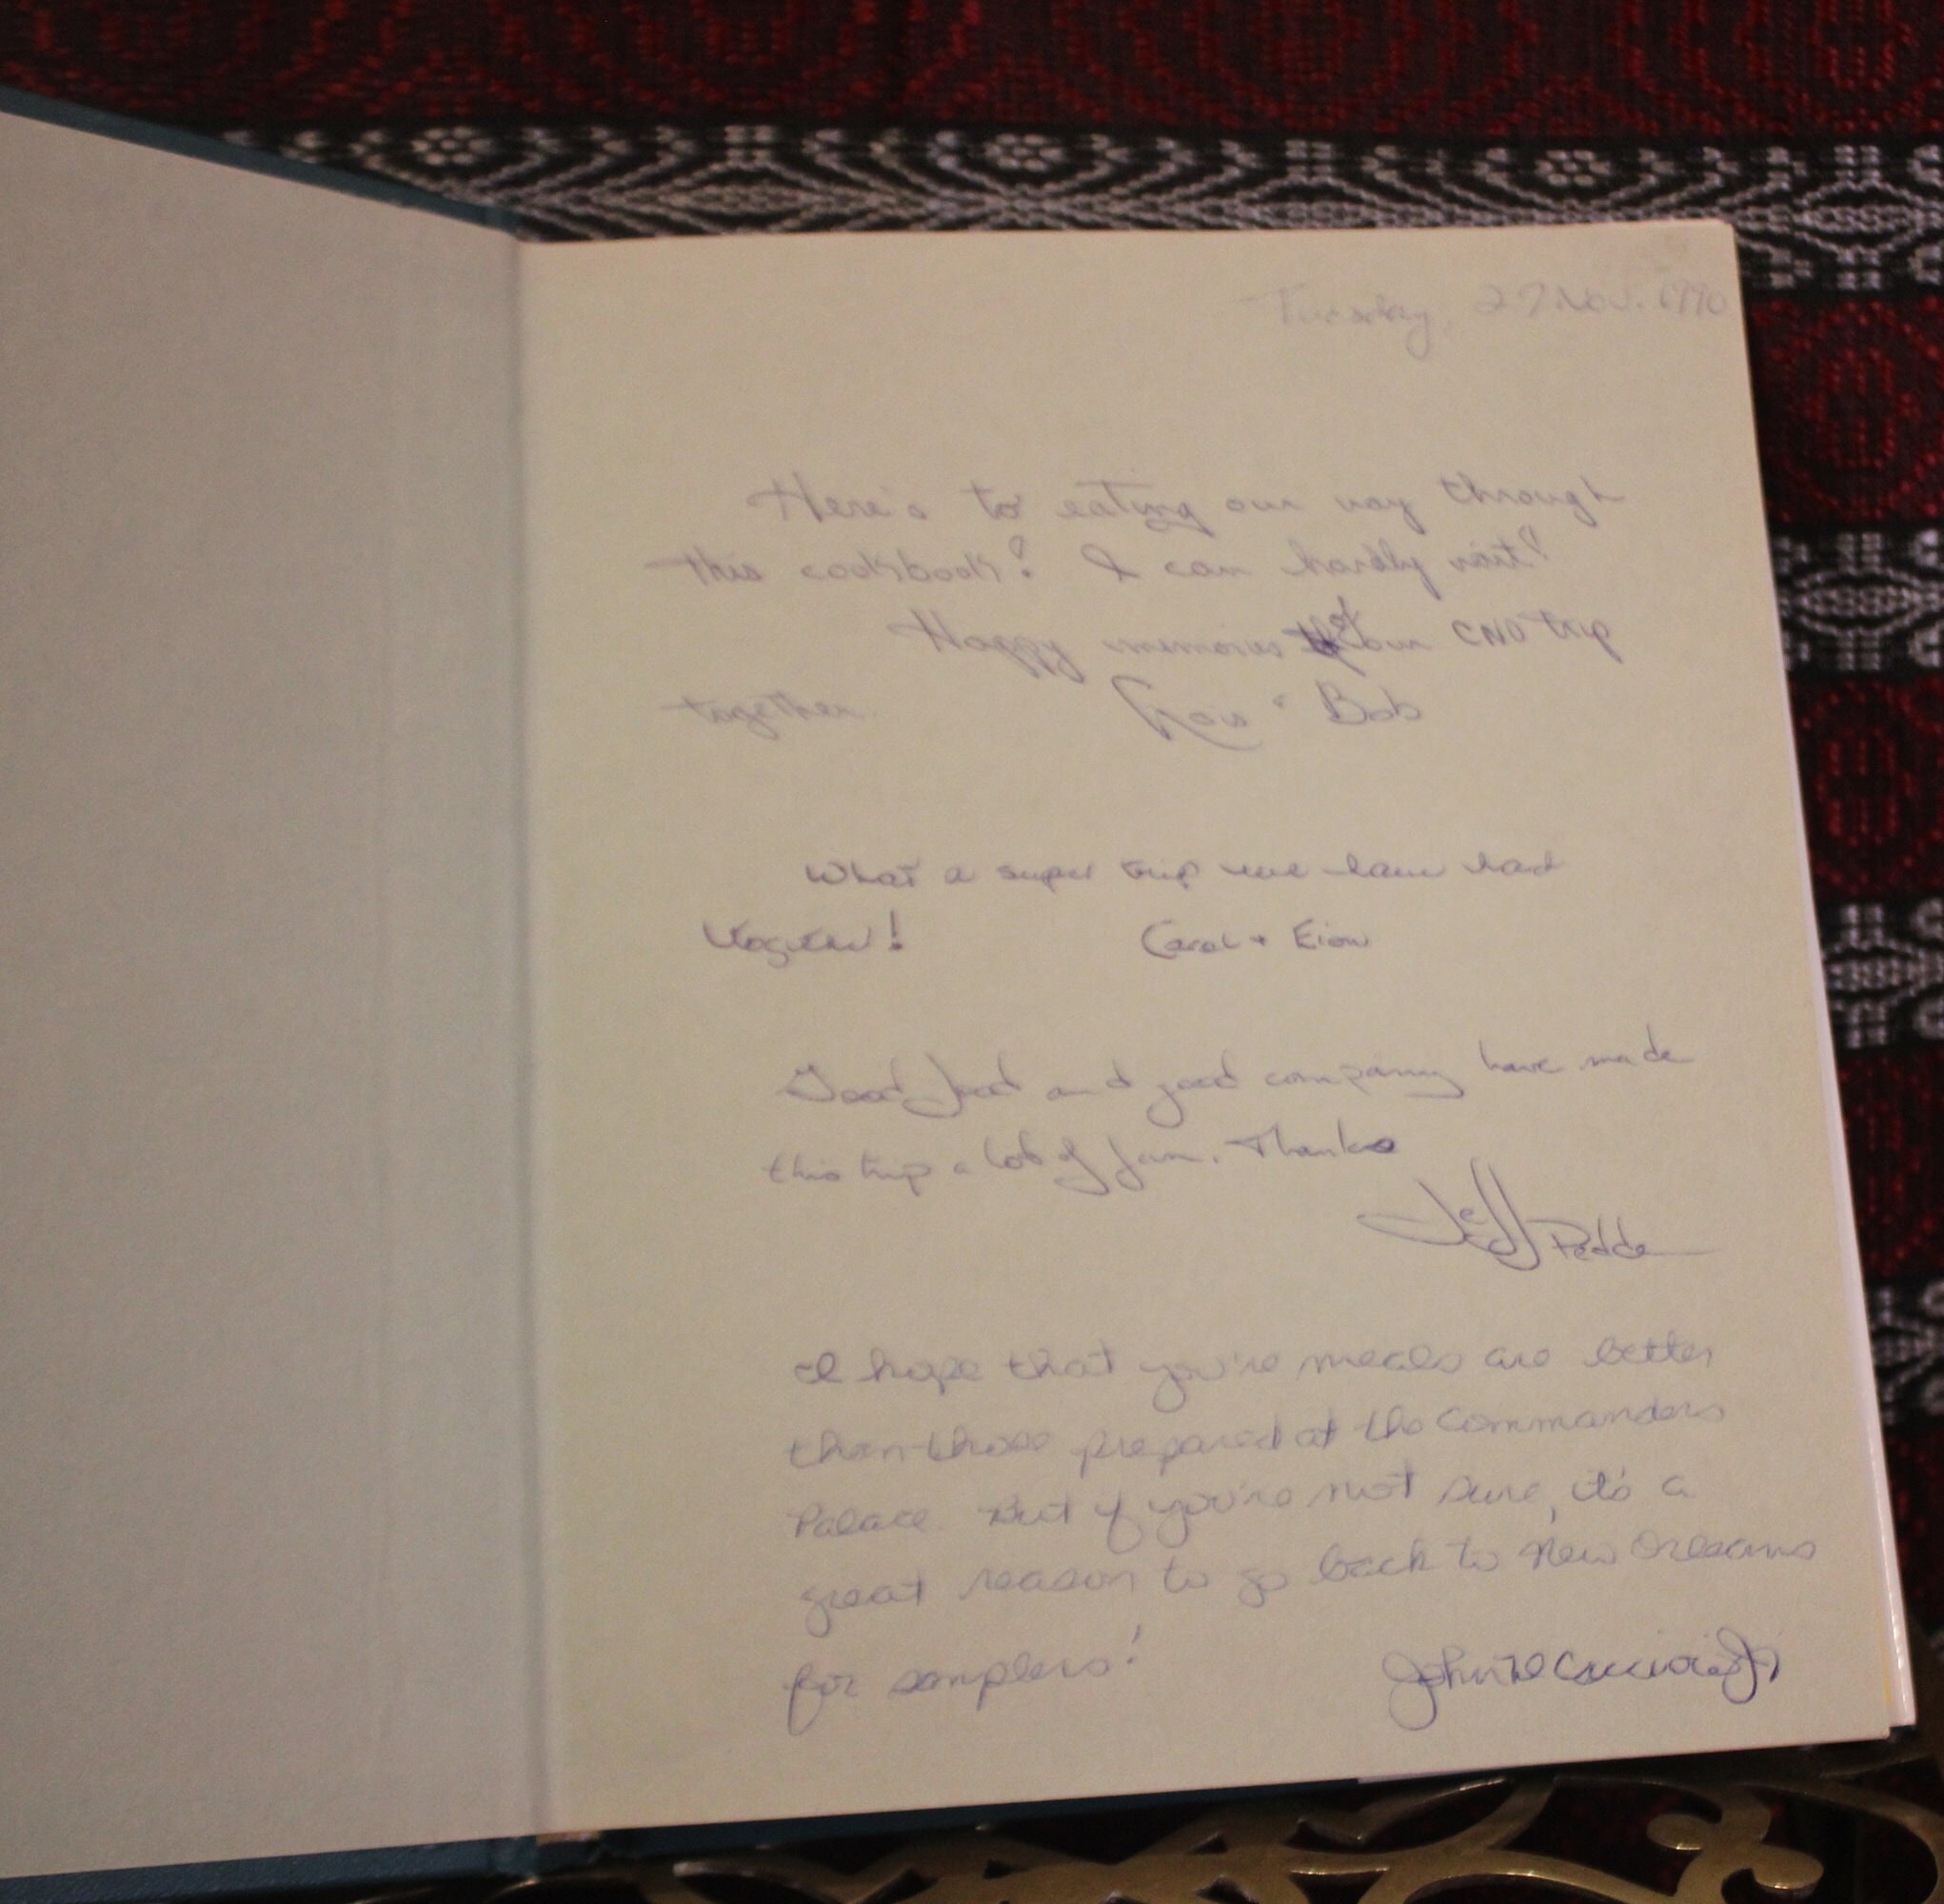 Tuesday, 27 Nov. 1990
Here's to eating our way through
this cookbook! I can hardly wait!
Happy memories of our CNO trip
together. & Bob
What a super trip we have had
together! Carol + Eion
Good food and good company have made
this trip a lot of fun. Thanks
Jeff Pedde
I hope that you're meals are better
than those prepared at the Commanders
Palace. But if you're not sure, it's a
great reason to go back to New Orleans
for samplers!
John Jr